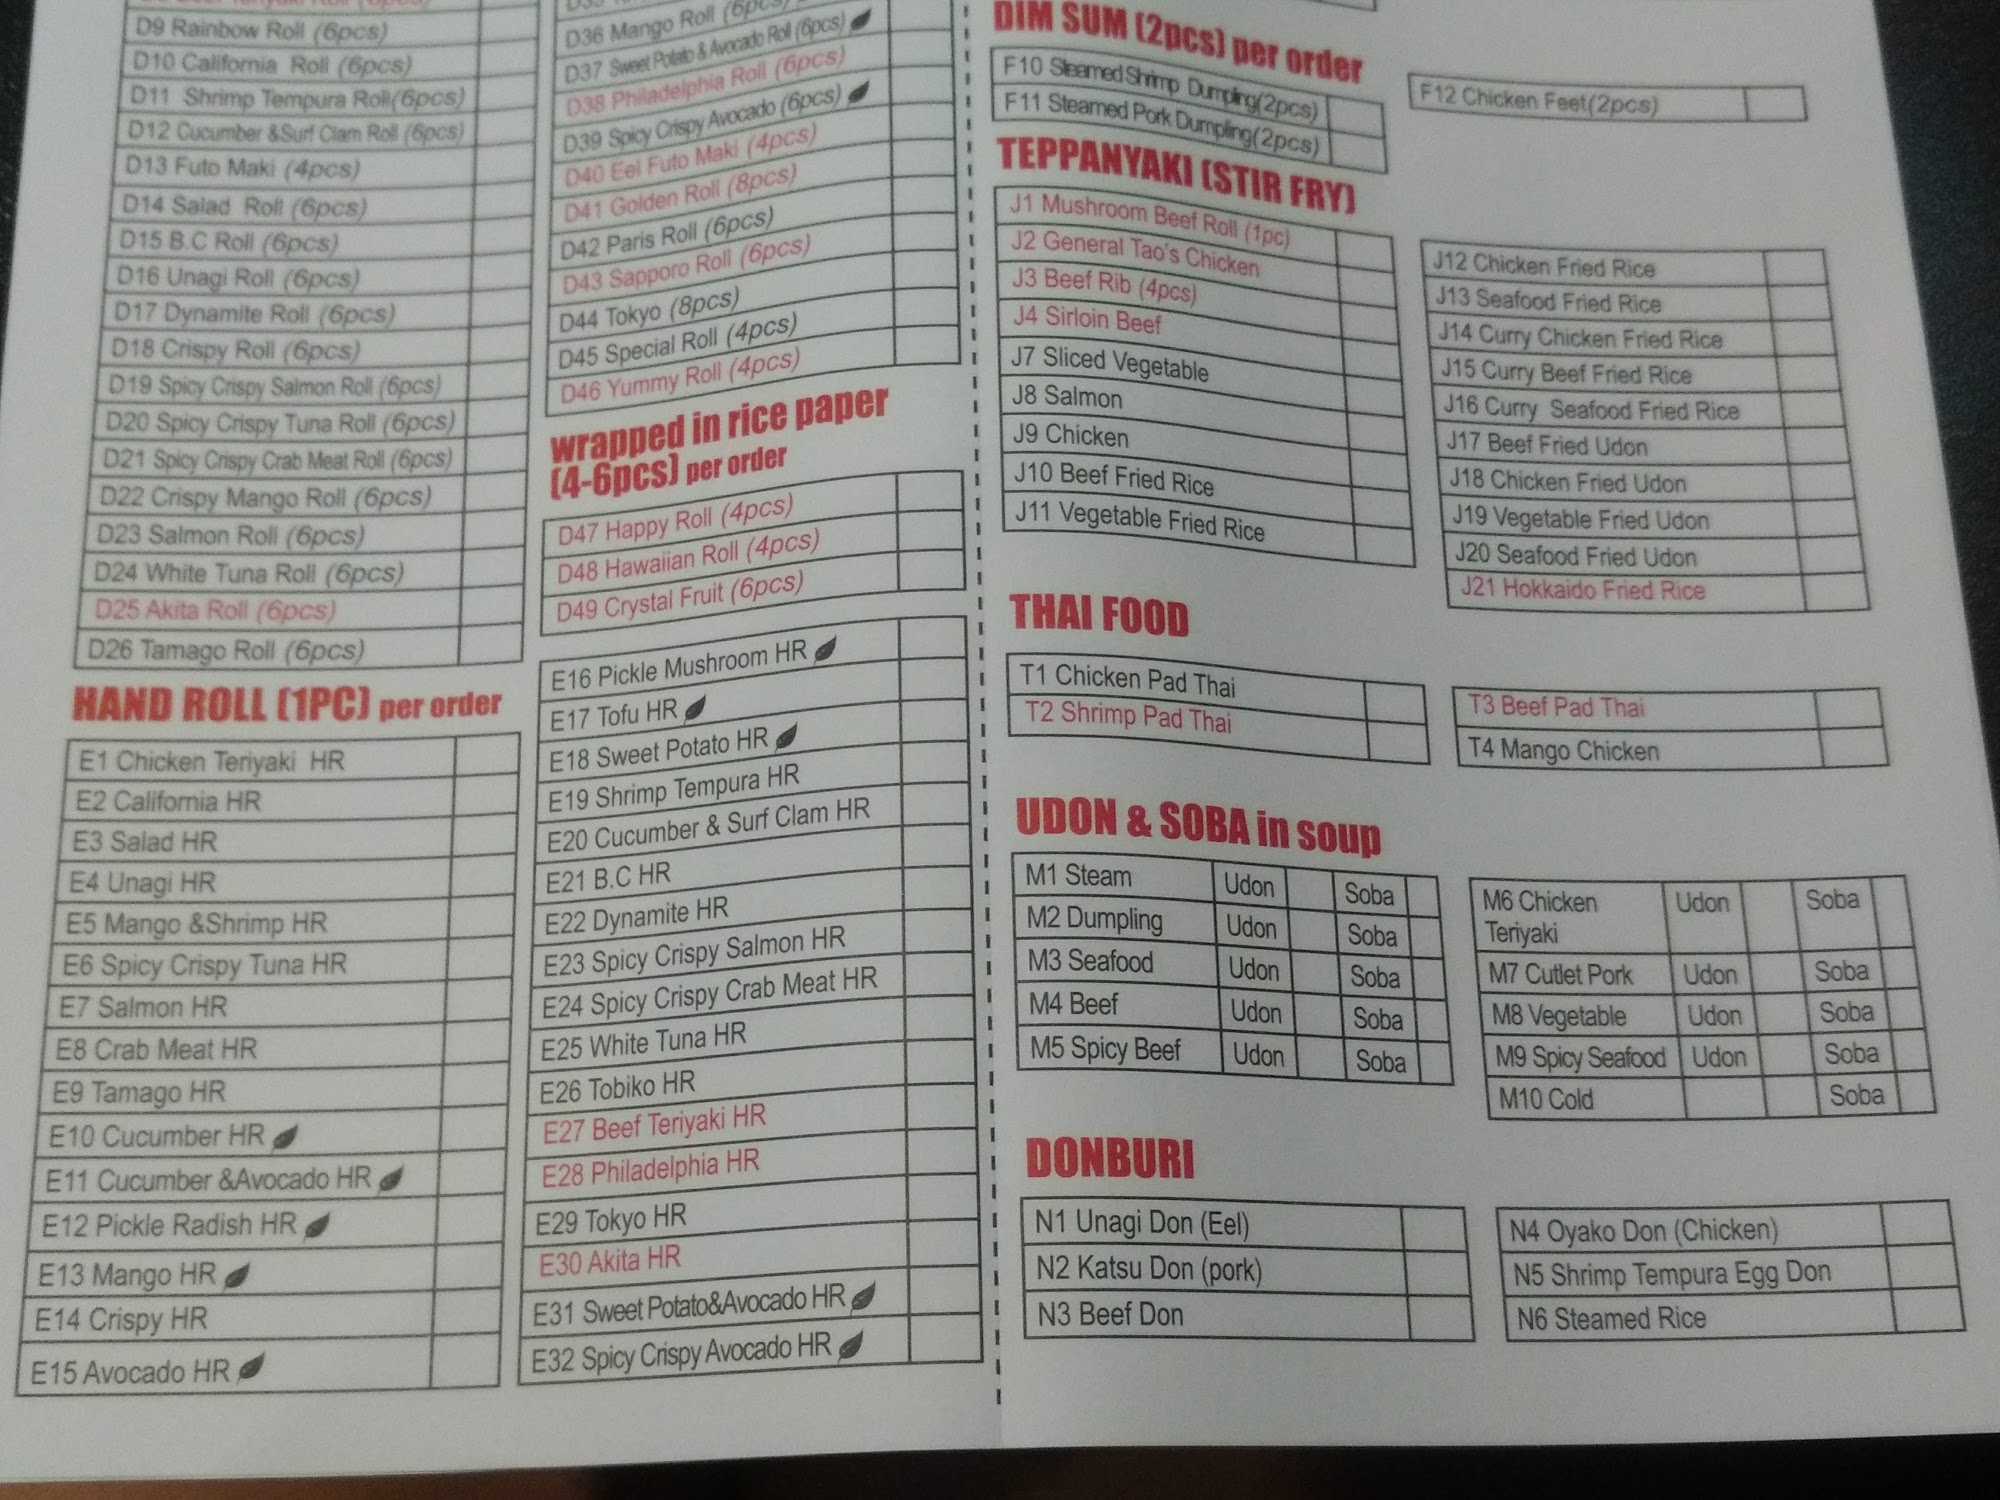 D9 Rainbow Roll (6pcs)
D10 California Roll (6pcs)
D11 Shrimp Tempura Roll(6pcs)
D12 Cucumber &Surf Clam Roll (6pcs)
D13 Futo Maki (4pcs)
D14 Salad Roll (6pcs)
D15 B.C Roll (6pcs)
D16 Unagi Roll (6pcs)
D17 Dynamite Roll (6pcs)
D18 Crispy Roll (6pcs)
D19 Spicy Crispy Salmon Roll (6pcs)
D20 Spicy Crispy Tuna Roll (6pcs)
D21 Spicy Crispy Crab Meat Roll (6pcs)
D22 Crispy Mango Roll (6pcs)
D23 Salmon Roll (6pcs)
D24 White Tuna Roll (6pcs)
D25 Akita Roll (6pcs)
D26 Tamago Roll (6pcs)
HAND ROLL (1PC) per order
E1 Chicken Teriyaki HR
E2 California HR
E3 Salad HR
E4 Unagi HR
E5 Mango &Shrimp HR
E6 Spicy Crispy Tuna HR
E7 Salmon HR
E8 Crab Meat HR
E9 Tamago HR
E10 Cucumber HR
E11 Cucumber &Avocado HR
E12 Pickle Radish HR
E13 Mango HR
E14 Crispy HR
E15 Avocado HR
D36 Mango Roll (6pcs)
D37 Sweet Potato & Avocado Roll (6pcs)
D38 Philadelphia Roll (6pcs)
D39 Spicy Crispy Avocado (6pcs)
D40 Eel Futo Maki (4pcs)
D41 Golden Roll (8pcs)
D42 Paris Roll (6pcs)
D43 Sapporo Roll (6pcs)
D44 Tokyo (8pcs)
D45 Special Roll (4pcs)
D46 Yummy Roll (4pcs)
wrapped in rice paper
(4-6pcs) per order
D47 Happy Roll (4pcs)
D48 Hawaiian Roll (4pcs)
D49 Crystal Fruit (6pcs)
E16 Pickle Mushroom HR
E17 Tofu HR
E18 Sweet Potato HR
E19 Shrimp Tempura HR
E20 Cucumber & Surf Clam HR
E21 B.C HR
E22 Dynamite HR
E23 Spicy Crispy Salmon HR
E24 Spicy Crispy Crab Meat HR
E25 White Tuna HR
E26 Tobiko HR
E27 Beef Teriyaki HR
E28 Philadelphia HR
E29 Tokyo HR
E30 Akita HR
E31 Sweet Potato&Avocado HR
E32 Spicy Crispy Avocado HR
DIM SUM (2pcs) per order
F10 Steamed Shrimp Dumpling(2pcs)
F11 Steamed Pork Dumpling(2pcs)
F12 Chicken Feet(2pcs)
TEPPANYAKI (STIR FRY)
J1 Mushroom Beef Roll (1pc)
J2 General Tao's Chicken
J3 Beef Rib (4pcs)
J4 Sirloin Beef
J7 Sliced Vegetable
J8 Salmon
J9 Chicken
J10 Beef Fried Rice
J11 Vegetable Fried Rice
J12 Chicken Fried Rice
J13 Seafood Fried Rice
J14 Curry Chicken Fried Rice
J15 Curry Beef Fried Rice
J16 Curry Seafood Fried Rice
J17 Beef Fried Udon
J18 Chicken Fried Udon
J19 Vegetable Fried Udon
J20 Seafood Fried Udon
J21 Hokkaido Fried Rice
THAI FOOD
T1 Chicken Pad Thai
T2 Shrimp Pad Thai
T3 Beef Pad Thai
T4 Mango Chicken
UDON & SOBA in soup
M1 Steam Udon Soba
M2 Dumpling Udon Soba
M3 Seafood Udon Soba
M4 Beef Udon Soba
M5 Spicy Beef Udon Soba
M6 Chicken Udon Soba
Teriyaki
M7 Cutlet Pork Udon Soba
M8 Vegetable Udon Soba
M9 Spicy Seafood Udon Soba
M10 Cold Soba
DONBURI
N1 Unagi Don (Eel)
N2 Katsu Don (pork)
N3 Beef Don
N4 Oyako Don (Chicken)
N5 Shrimp Tempura Egg Don
N6 Steamed Rice